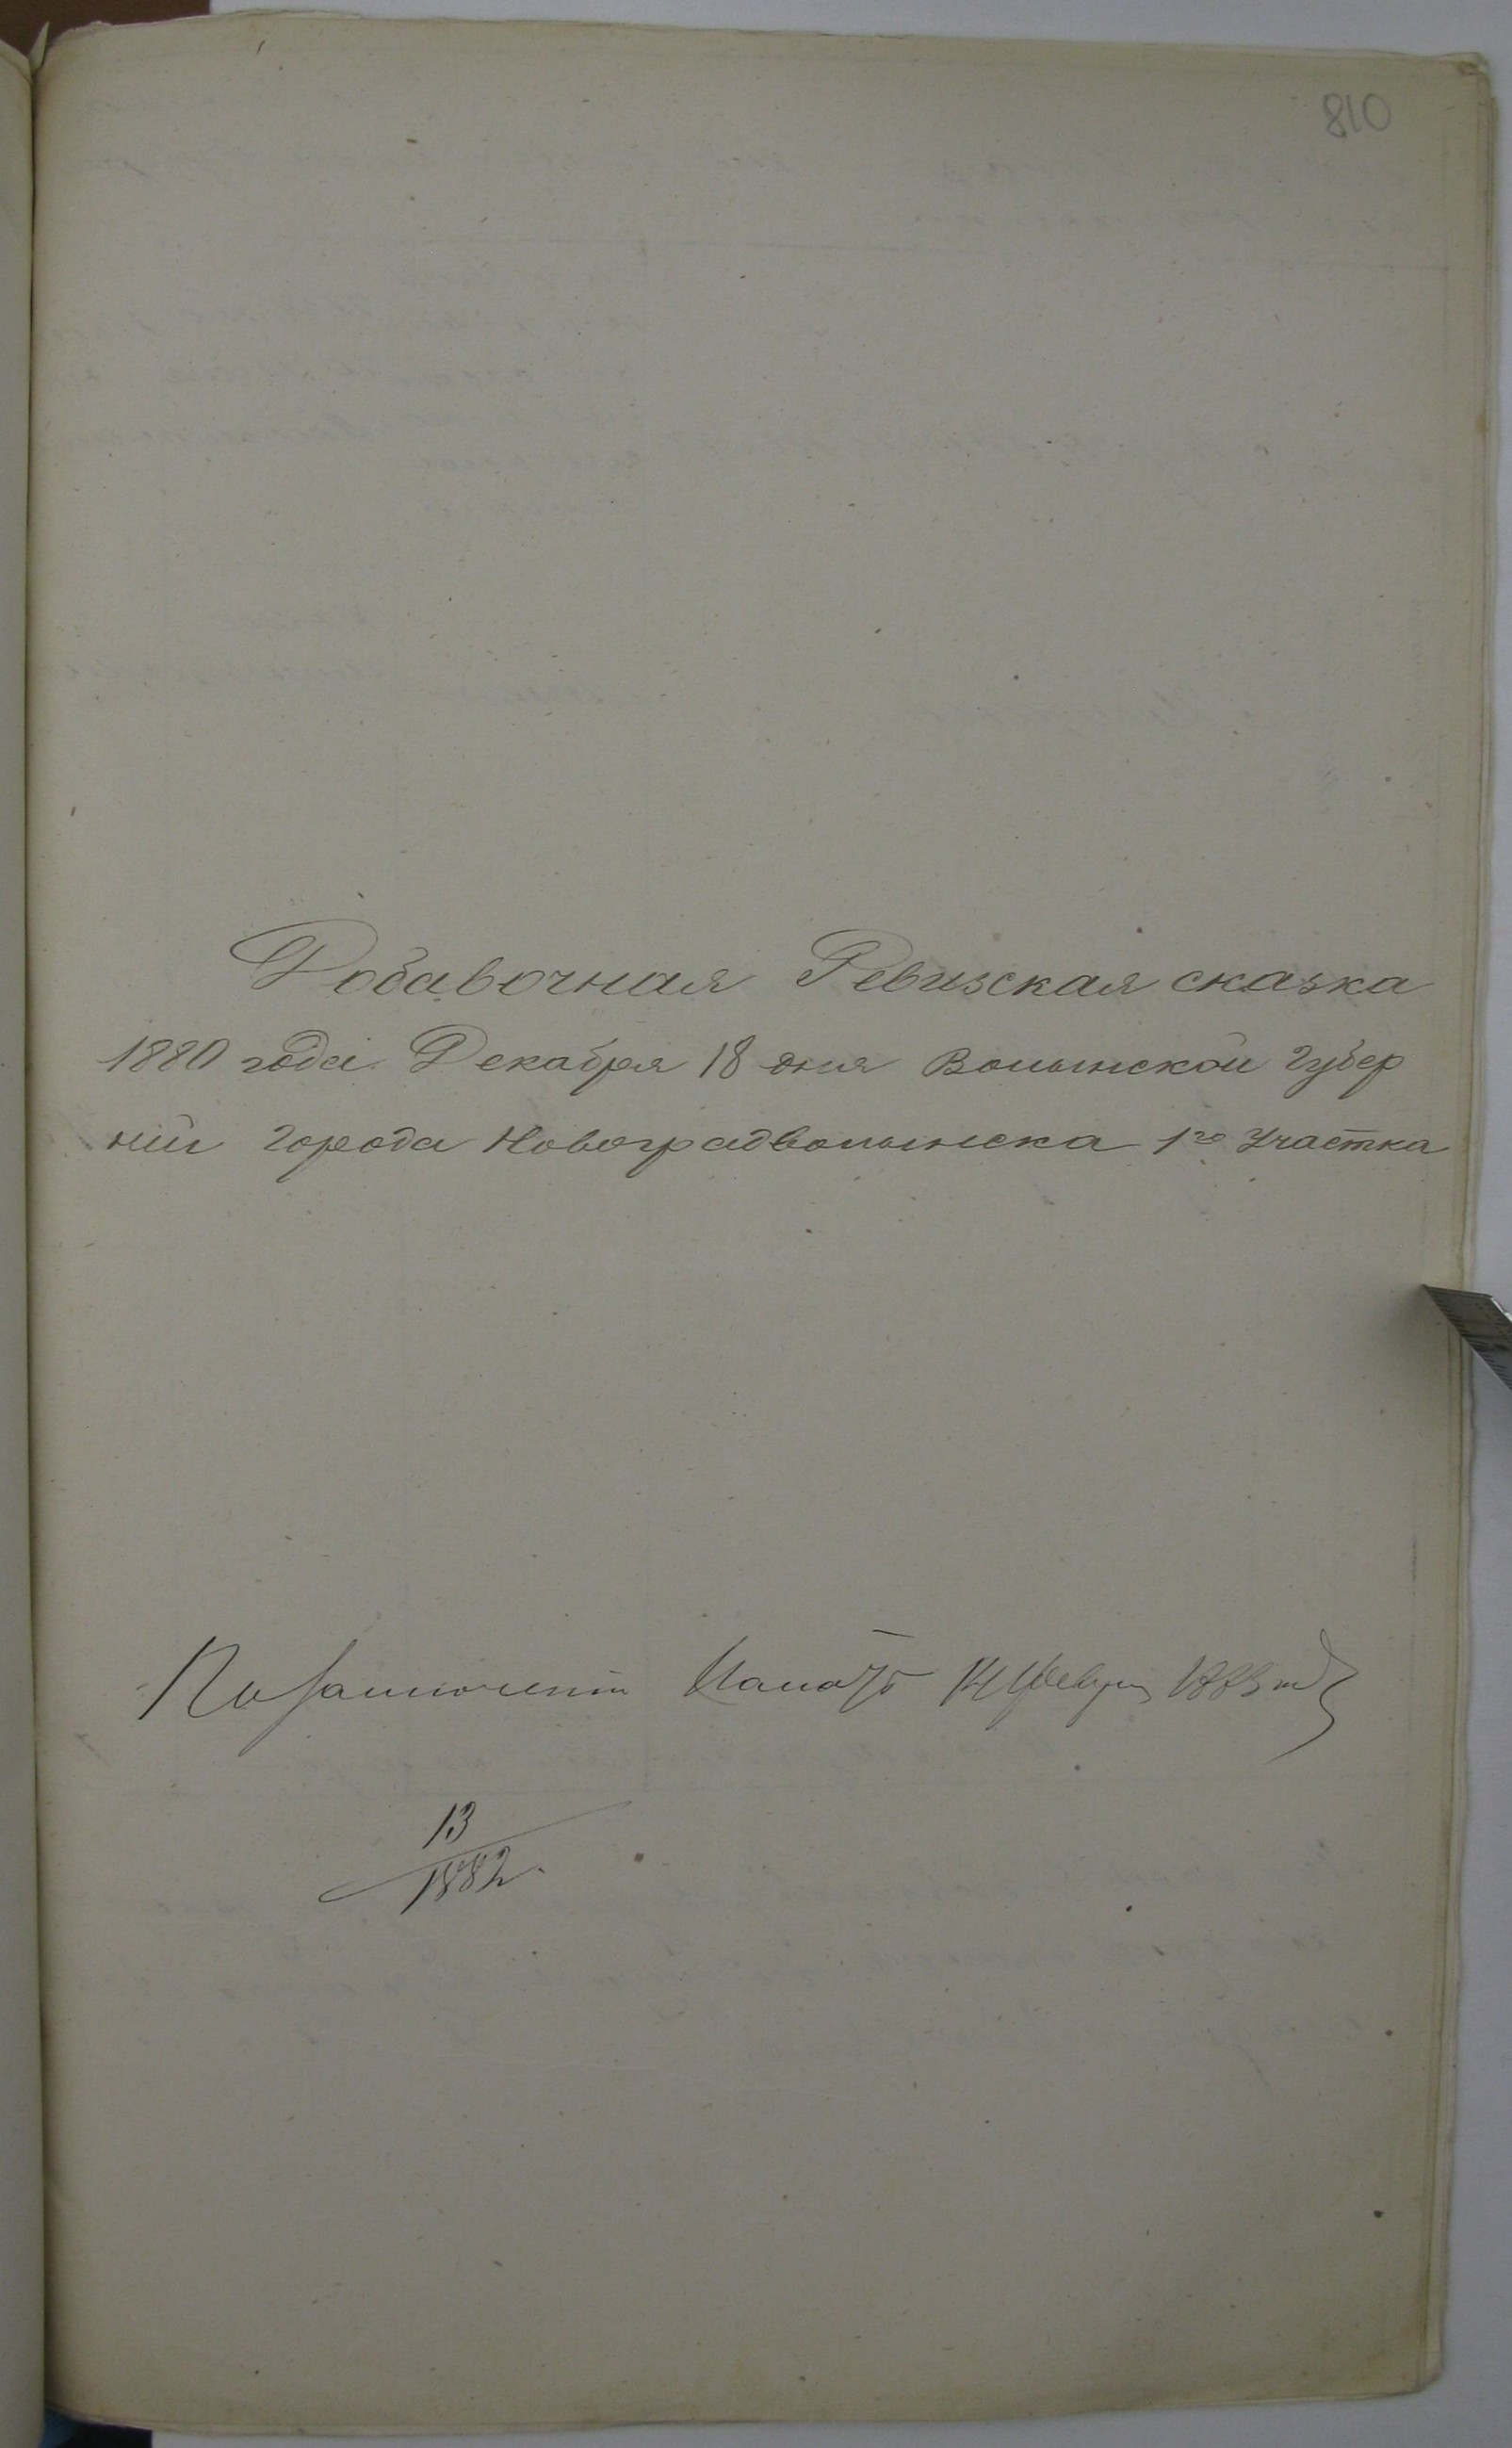 810
Добавочная Ревизская сказка
1880 года Декабря 18 дня Волынской Губер
нии города Новоградволынска 1го Участка
По заключению Палаты
13
1882.